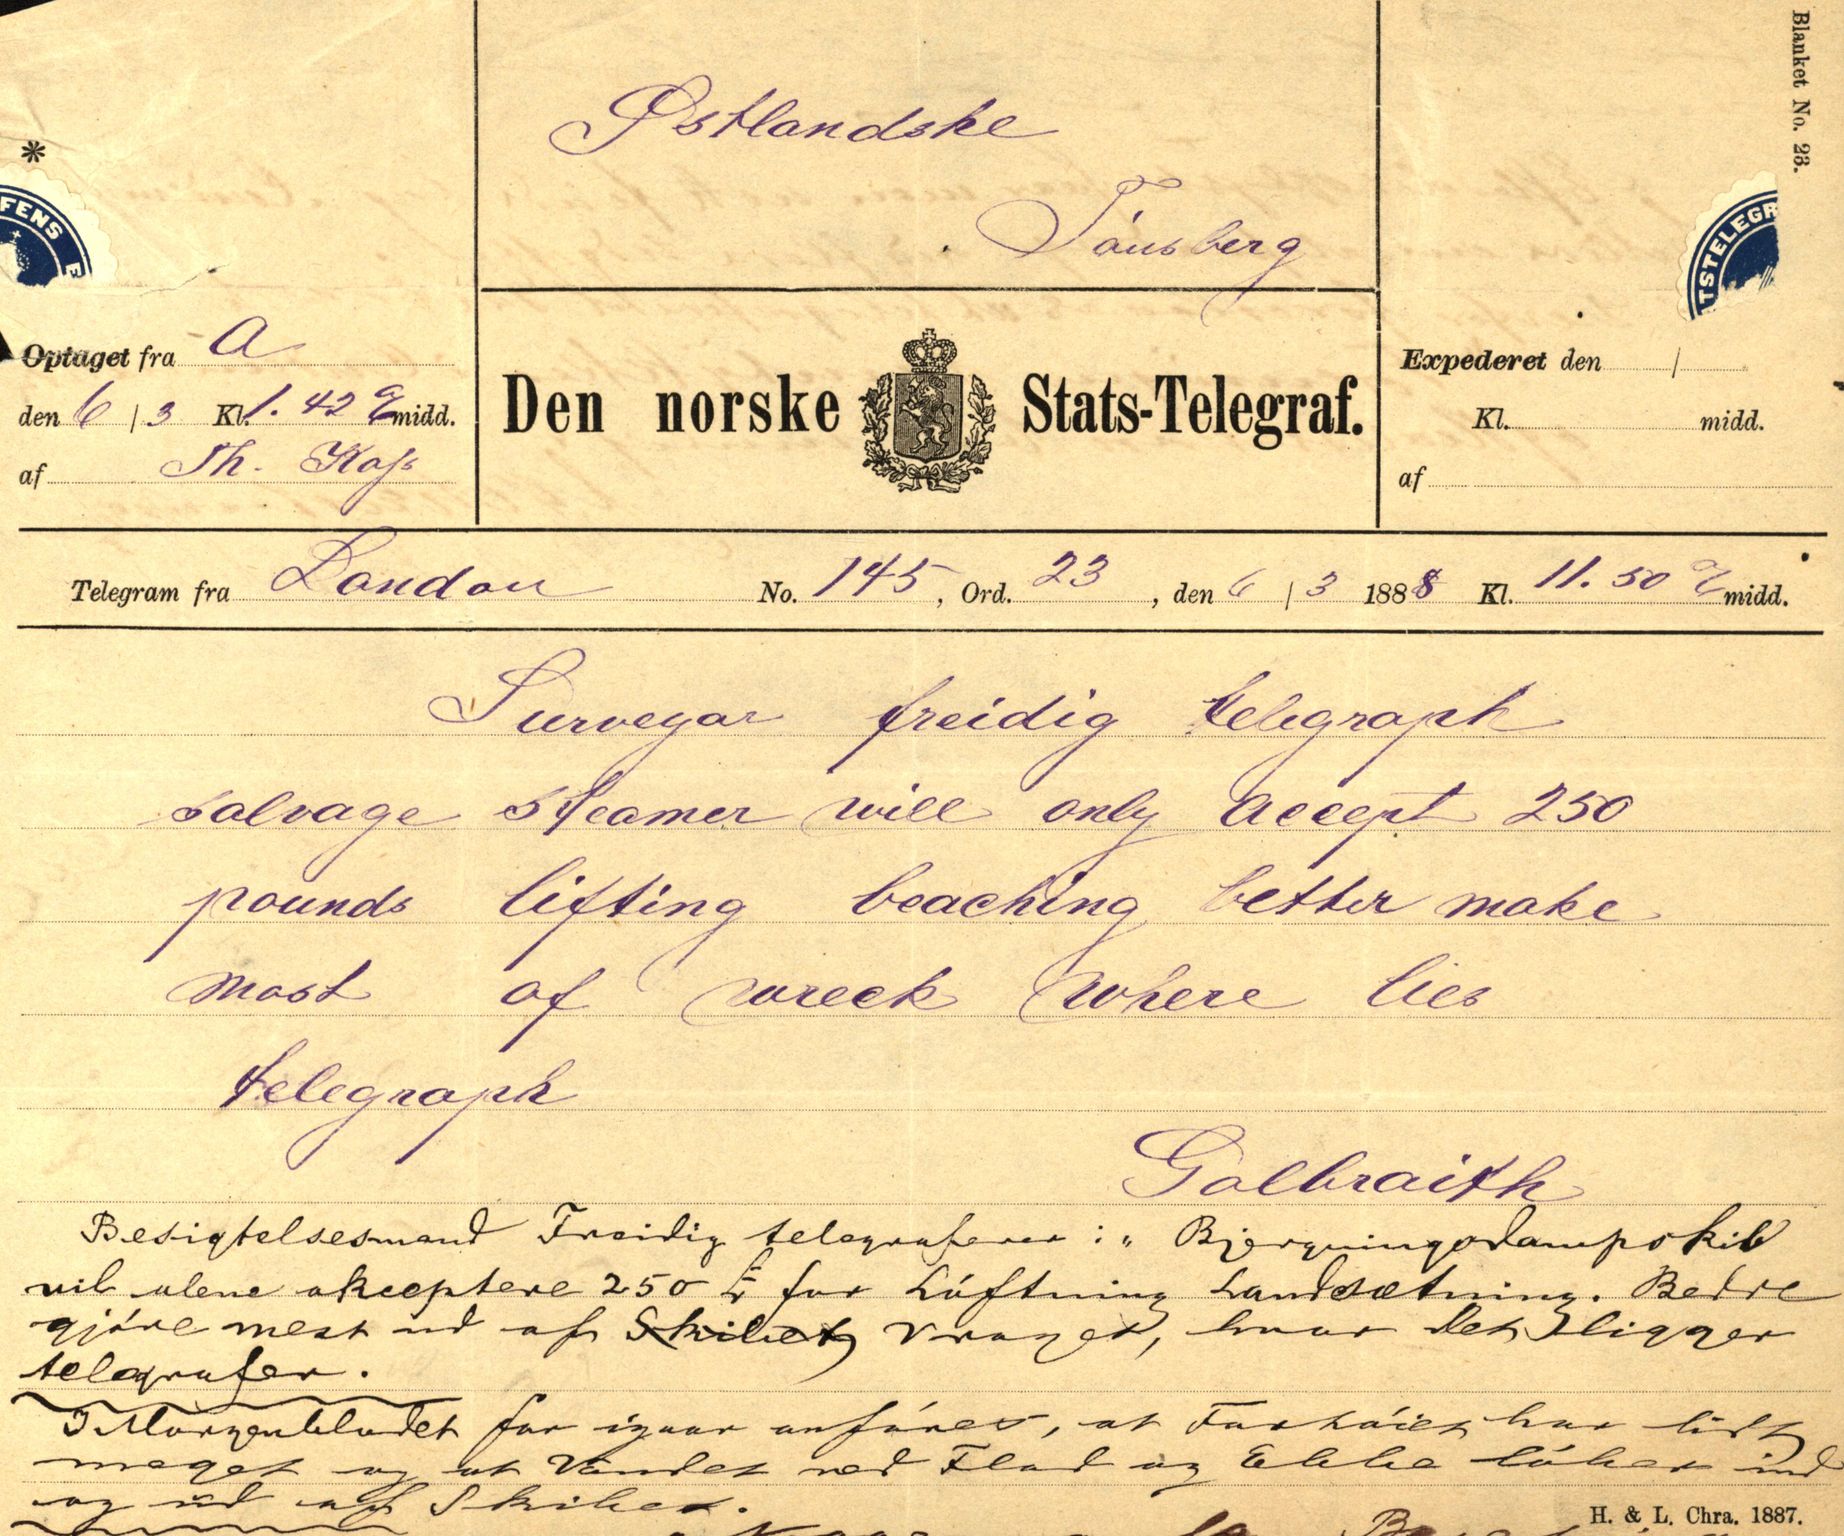 Blanket No. 23.
Østlandske
Tönsberg
*
FENS E
TSTELEGR
Optaget fra A
den 6 / 3 Kl. 1.42 E midd.
af Th. Kass
Den norske Stats-Telegraf.
Expederet den /
Kl. midd.
af
Telegram fra London No. 145, Ord. 23, den 6 / 3 1888 Kl. 11.50 F midd.
Surveyor freidig telegraph
salvage steamer will only accept 250
pounds lifting beaching better make
most of wreck where lies
telegraph
Galbraith
Besigtelsesmand Freidig telegraferer: „Bjergningsdampskib
vil alene akceptere 250 £ for Löftning Landsætning. Bedre
gjöre mest ud af Skibet Vraget, hvor det ligger
telegrafer.
I Morgenbladet for igaar anföres, at Fartöiet har lidt
meget og at Vandet ved Flod og Ebbe löber ind
og ud af Skibet.
H. & L. Chra. 1887.